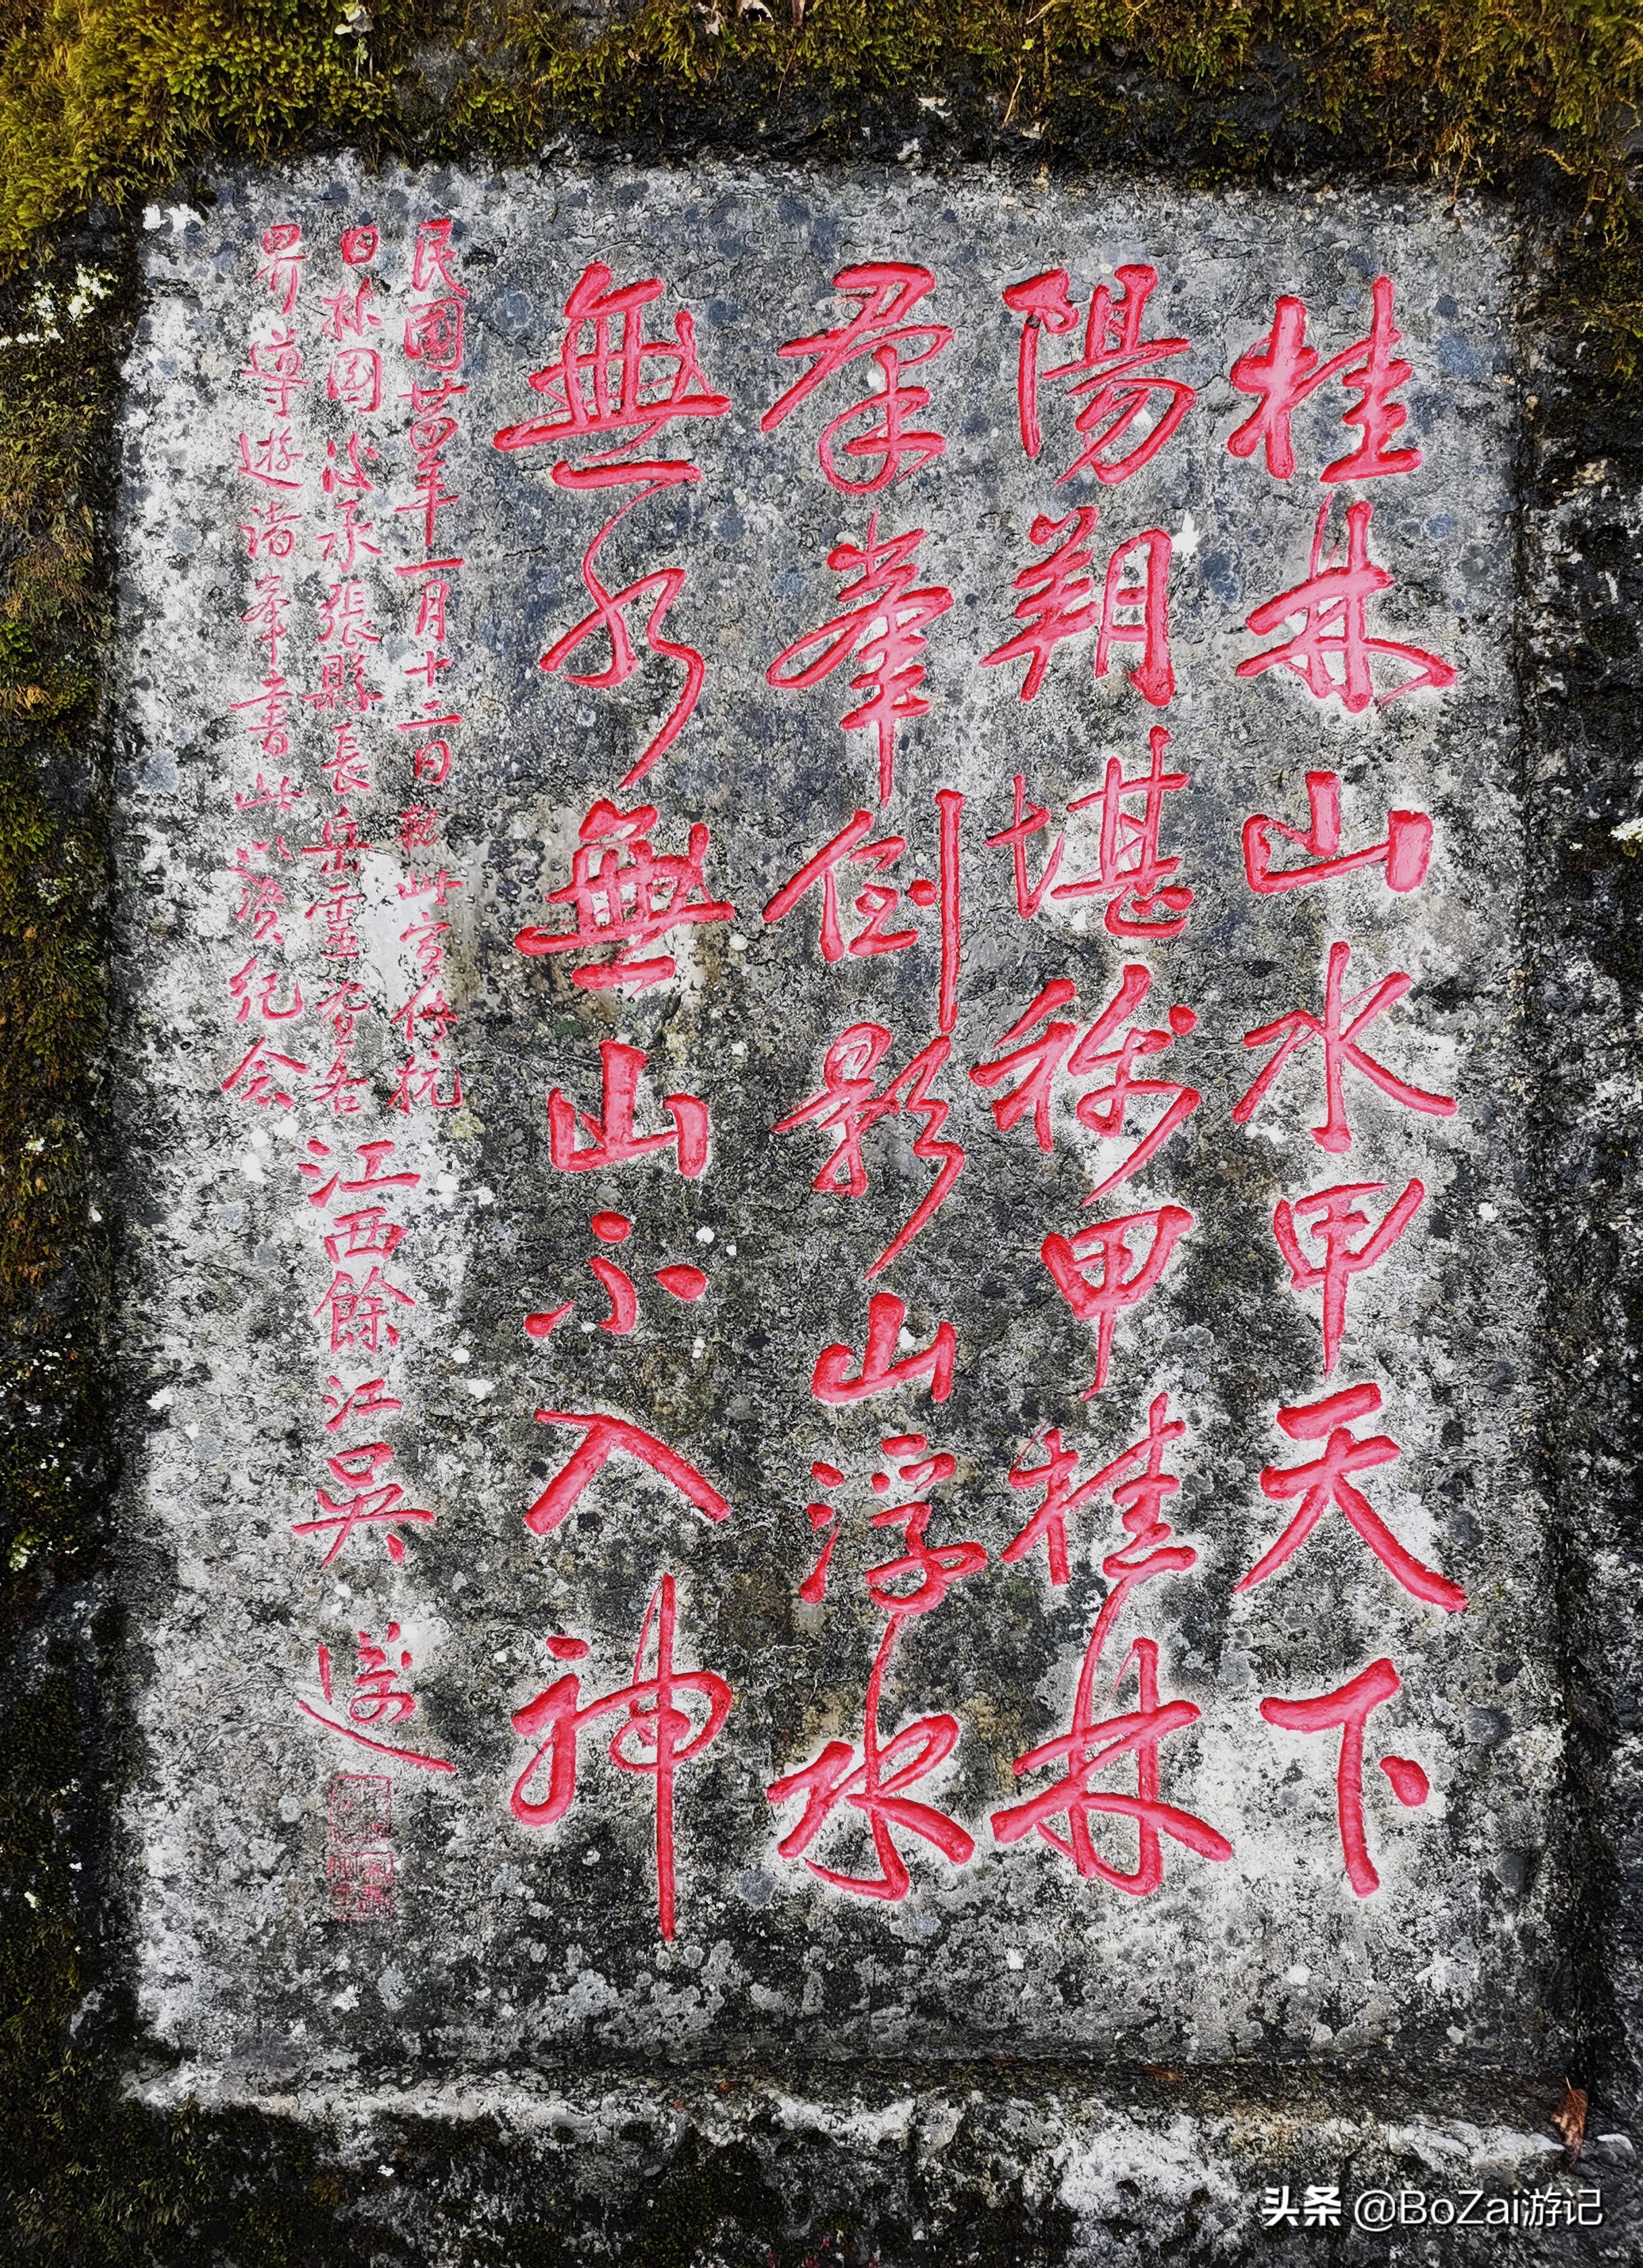 桂林山水甲天下
陽朔堪称甲桂林
羣峯倒影山浮水
無水無山不入神
民國廿四年一月十二日此宣傳抗
日救國後承張縣長岳靈各
界導遊諸峯書此以資紀念
江西餘江吳邁
头条 @BoZai游记